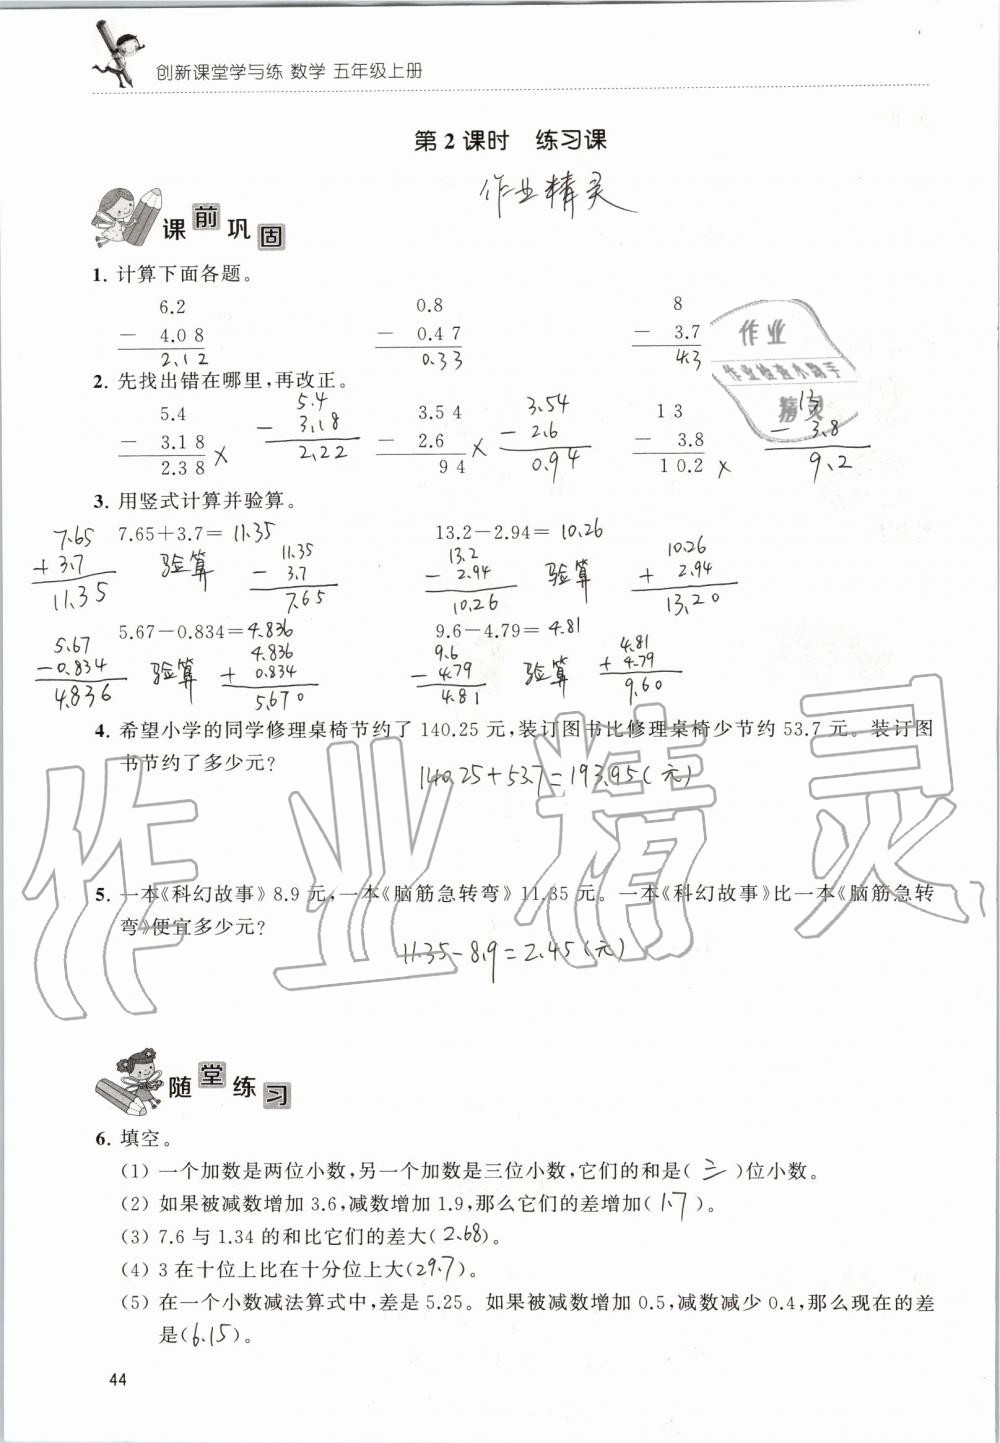 创新课堂学与练 数学 五年级上册
第2课时 练习课
作业精灵
课前巩固
1. 计算下面各题。
6.2 0.8 8
— 4.08 — 0.47 — 3.7
2.12 0.33 4.3
作业
作业检查小助手
精灵
2. 先找出错在哪里,再改正。
5.4 5.4 3.54 3.54 13 13
— 3.18 × — 3.18 — 2.6 × — 2.6 — 3.8 × — 3.8
2.38 2.22 94 0.94 10.2 9.2
3. 用竖式计算并验算。
7.65+3.7= 11.35 13.2−2.94= 10.26
7.65 验算 11.35 13.2 验算 10.26
+ 3.7 − 3.7 − 2.94 + 2.94
11.35 7.65 10.26 13.20
5.67−0.834= 4.836 9.6−4.79= 4.81
5.67 验算 4.836 9.6 验算 4.81
−0.834 + 0.834 − 4.79 + 4.79
4.836 5.670 4.81 9.60
4. 希望小学的同学修理桌椅节约了 140.25 元,装订图书比修理桌椅少节约 53.7 元。装订图
书节约了多少元?
140.25+53.7=193.95(元)
5. 一本《科幻故事》8.9 元,一本《脑筋急转弯》11.35 元。一本《科幻故事》比一本《脑筋急转
弯》便宜多少元?
11.35−8.9=2.45(元)
作业精灵
随堂练习
6. 填空。
(1) 一个加数是两位小数,另一个加数是三位小数,它们的和是( 三 )位小数。
(2) 如果被减数增加 3.6,减数增加 1.9,那么它们的差增加( 1.7 )。
(3) 7.6 与 1.34 的和比它们的差大( 2.68 )。
(4) 3 在十位上比在十分位上大( 29.7 )。
(5) 在一个小数减法算式中,差是 5.25。如果被减数增加 0.5,减数减少 0.4,那么现在的差
是( 6.15 )。
44